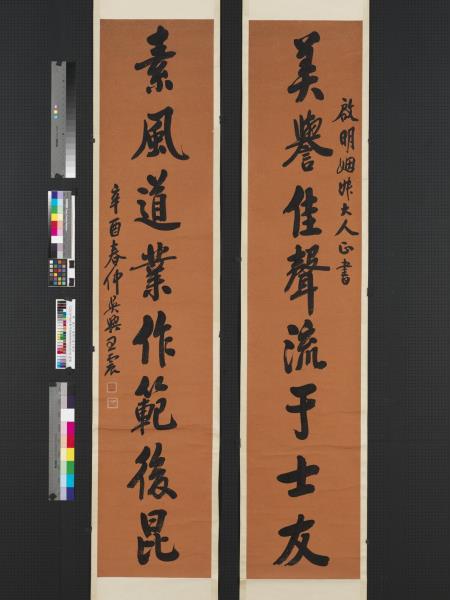 美譽佳聲流于士友
啟明姻姪大人正書
素風道業作範後昆
辛酉春仲吳興王震